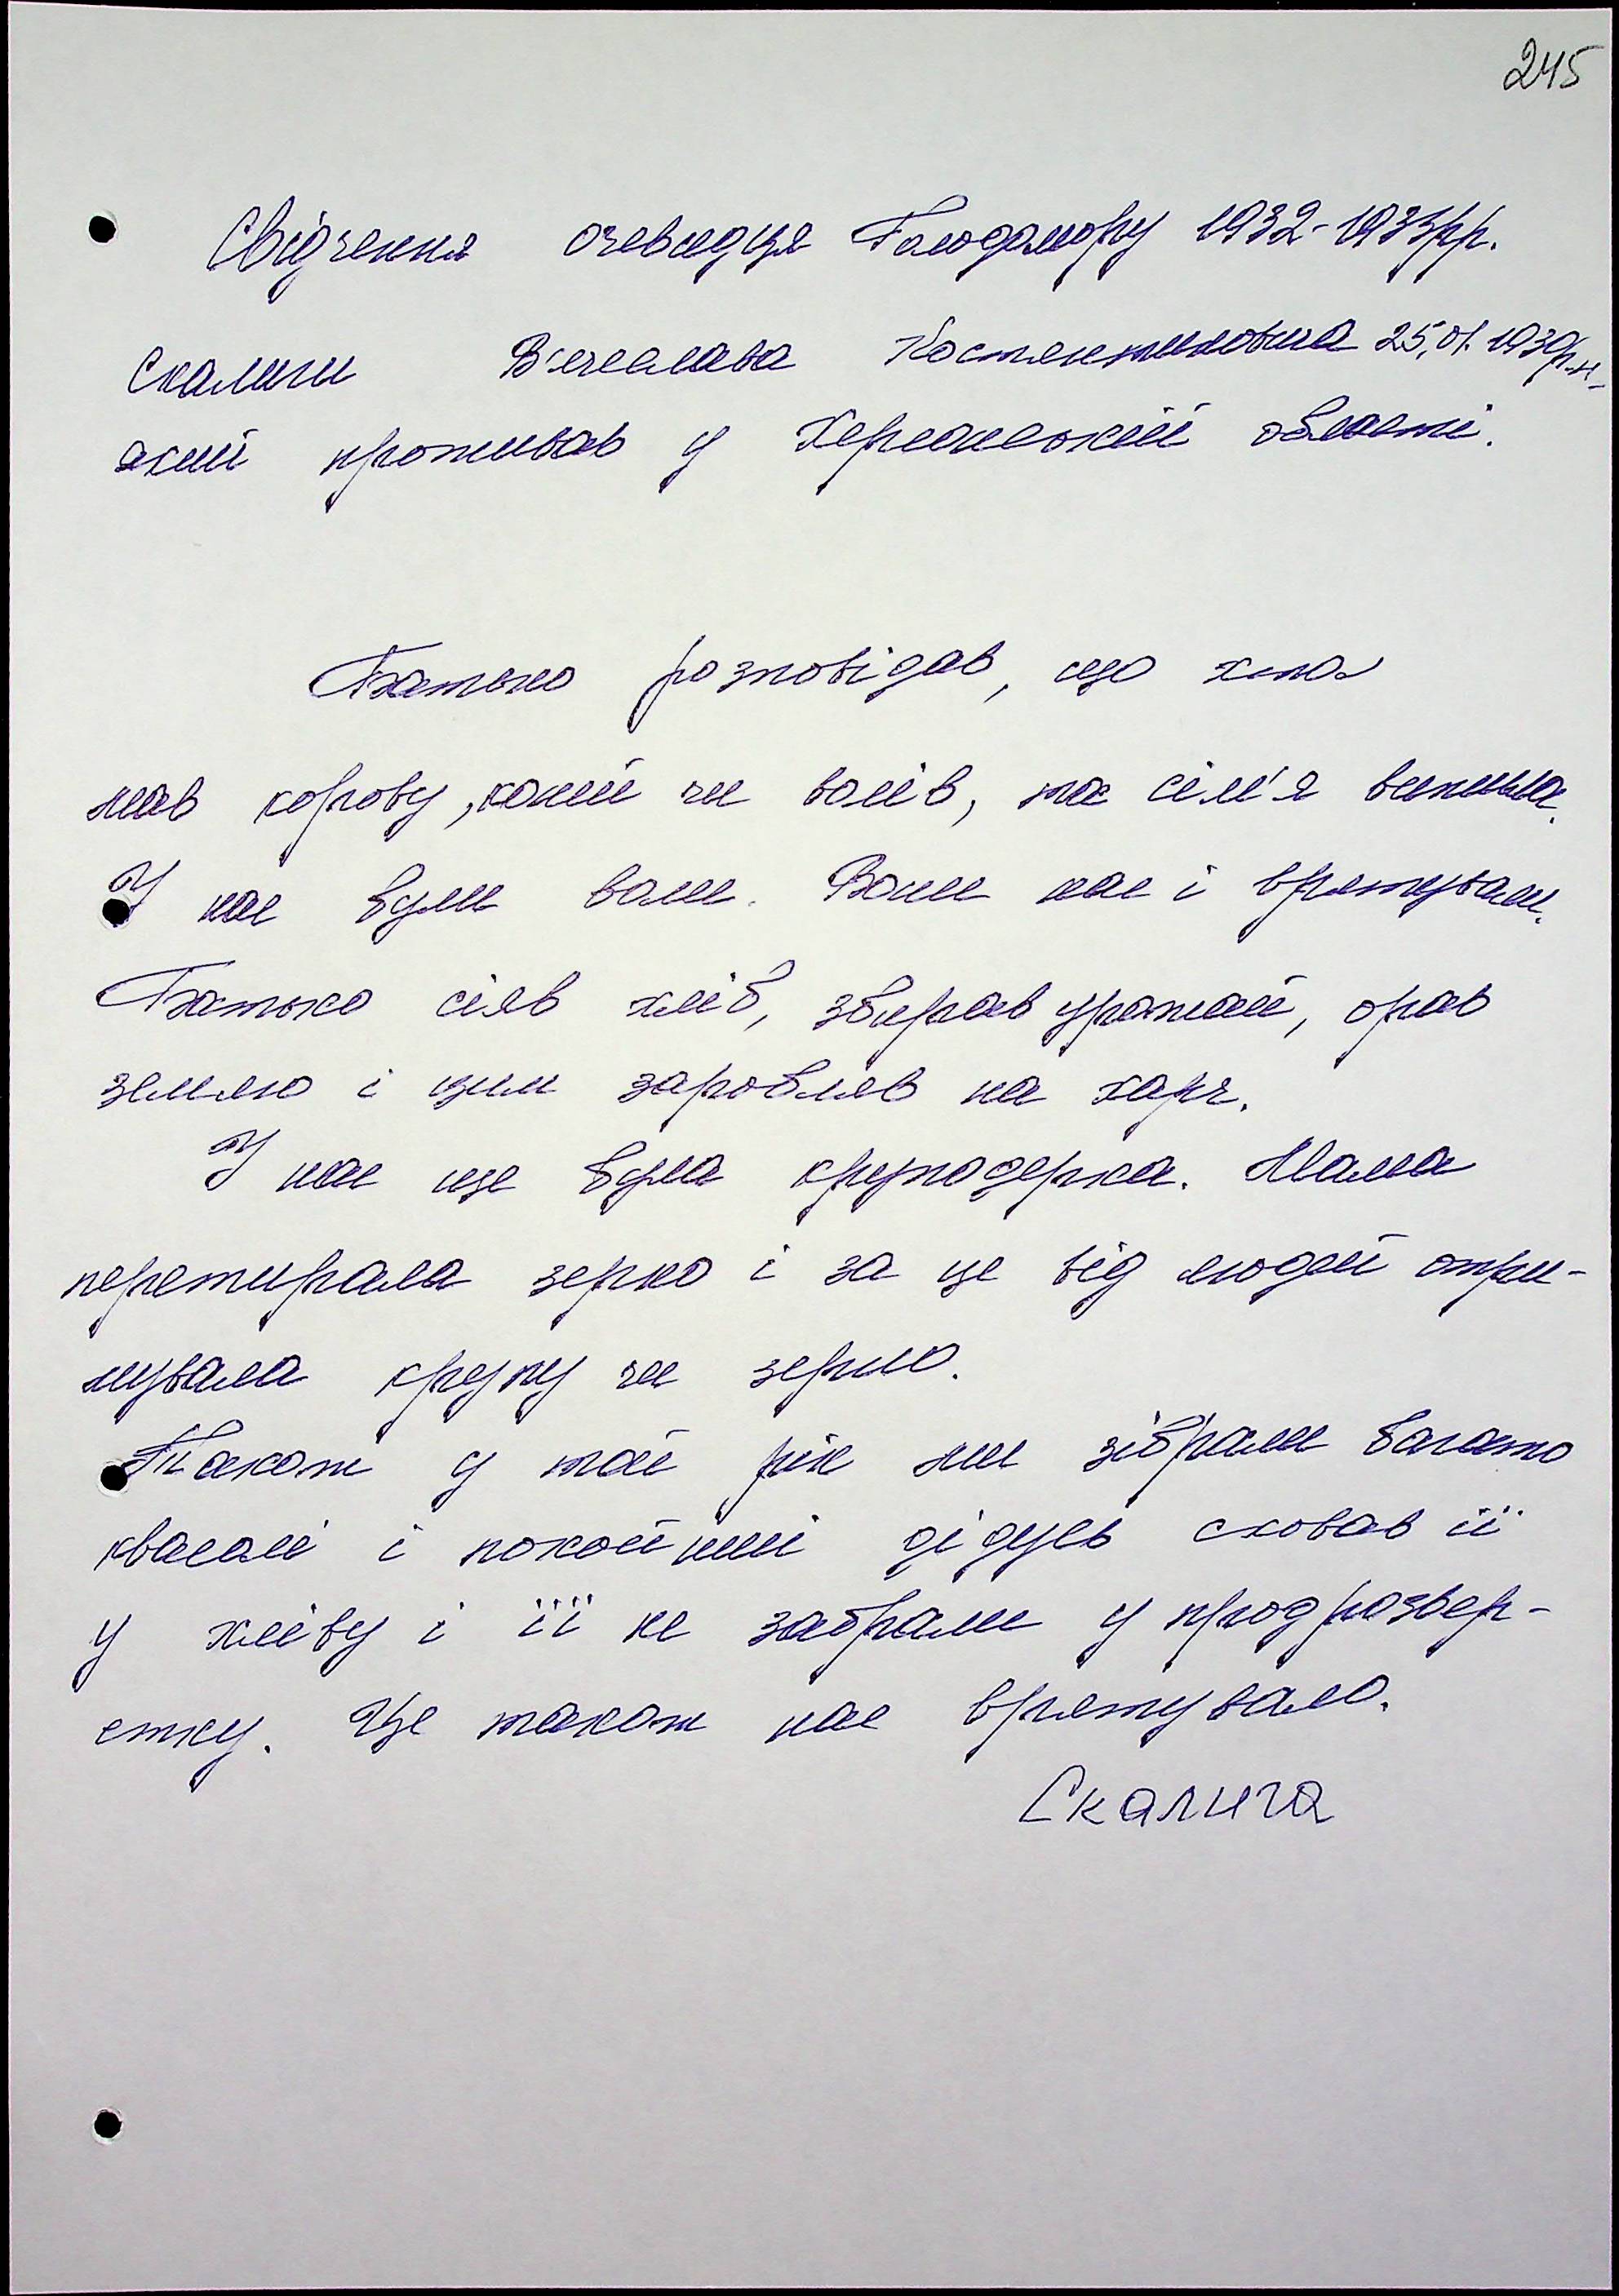 245
Свідчення очевидця Голодомору 1932-1933рр.
Скалиги В'ячеслава Костянтиновича 25.01.1930р.н.
який проживав у Херсонській області.
Батько розповідав, що хто
мав корову, коней чи волів, та сім'я вижила.
У нас були воли. Вони нас і врятували.
Батько сіяв хліб, збирав урожай, орав
землю і цим заробляв на харч.
У нас ще була круподерка. Мама
перетирала зерно і за це від людей отри-
мувала крупу чи зерно.
Також у той рік ми зібрали багато
квасолі і покойний дідусь сховав її
у хліву і її не забрали у продрозвер-
стку. Це також нас врятувало.
Скалига